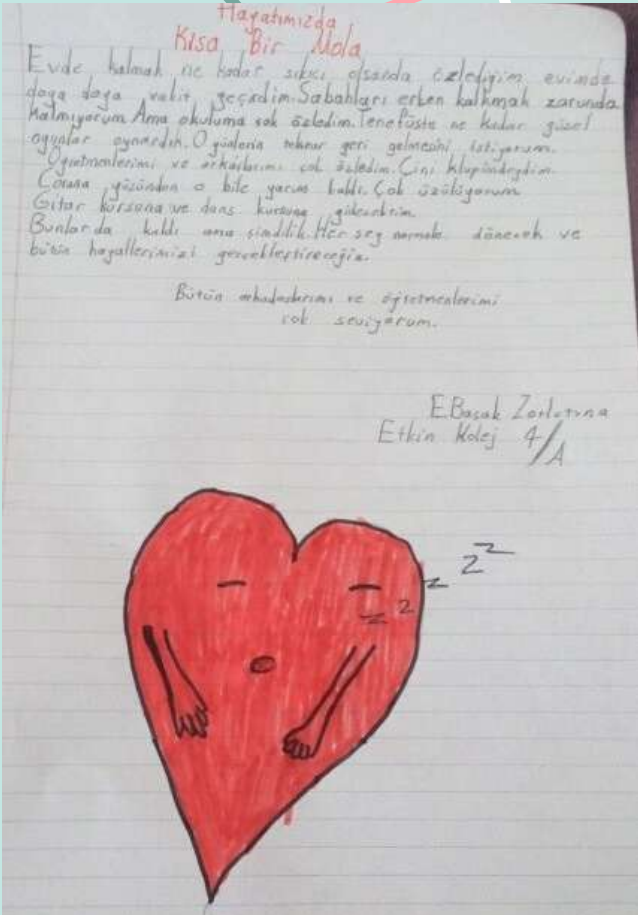 Hayatımızda
Kısa Bir Mola
Evde kalmak ne kadar sıkıcı olsada özlediğim evimde
doya doya vakit geçirdim. Sabahları erken kalkmak zorunda
kalmıyorum. Ama okuluma çok özledim. Tenefüste ne kadar güzel
oyunlar oynardık. O günlerin tekrar geri gelmesini istiyorum.
Öğretmenlerimi ve arkadaşlarımı çok özledim. Çini klupündeydim.
Corona yüsünden o bile yarım kaldı. Çok üzülüyorum
Gitar kursuna ve dans kursuna gidecektim.
Bunlarda kaldı ama şimdilik. Her şey normale dönecek ve
bütün hayallerimizi gerçekleştireceğiz.
Bütün arkadaşlarımı ve öğretmenlerimi
çok seviyorum.
E.Başak Zorlutuna
Etkin Kolej 4/A
z z z
z z